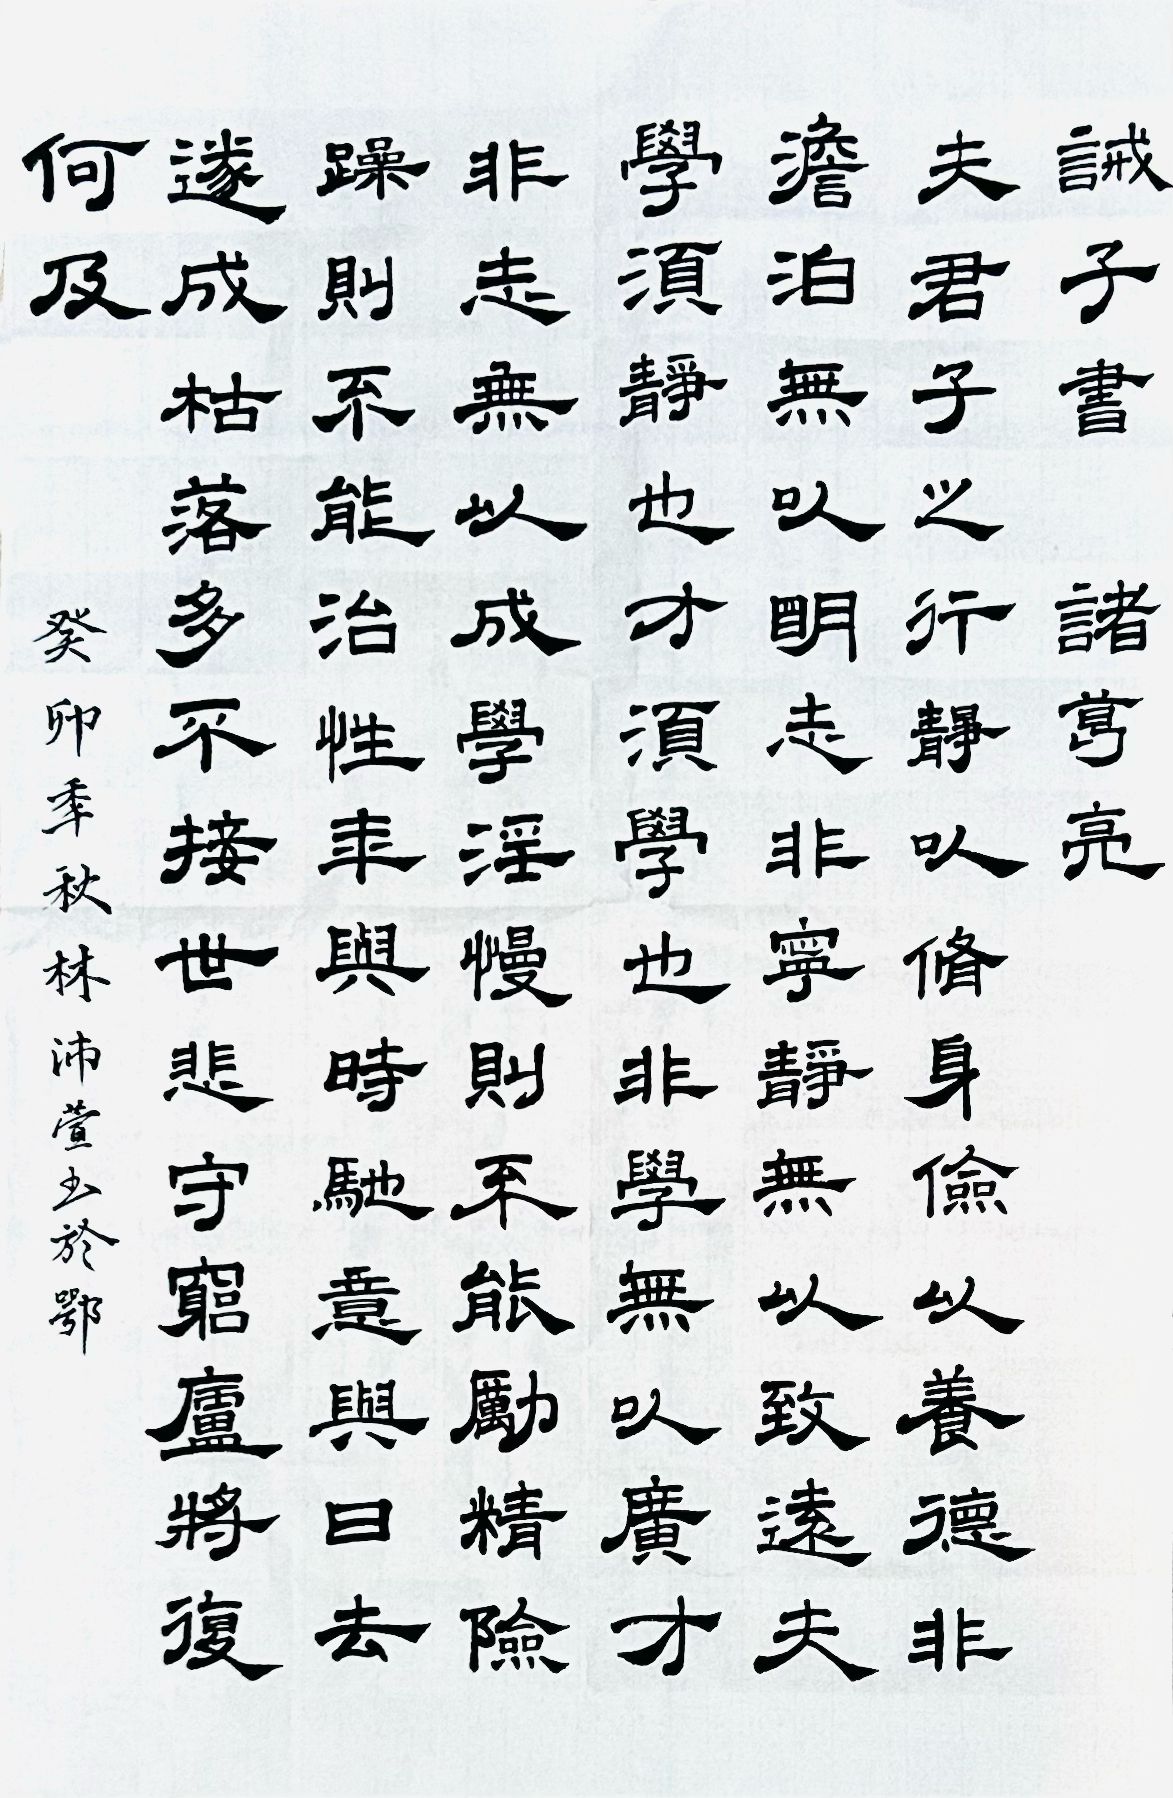 誡子書 諸葛亮
夫君子之行靜以脩身儉以養德非
澹泊無以明志非寧靜無以致遠夫
學須靜也才須學也非學無以廣才
非志無以成學淫慢則不能勵精險
躁則不能治性年與時馳意與日去
遂成枯落多不接世悲守窮廬將復
何及
癸卯季秋林沛萱书於鄂